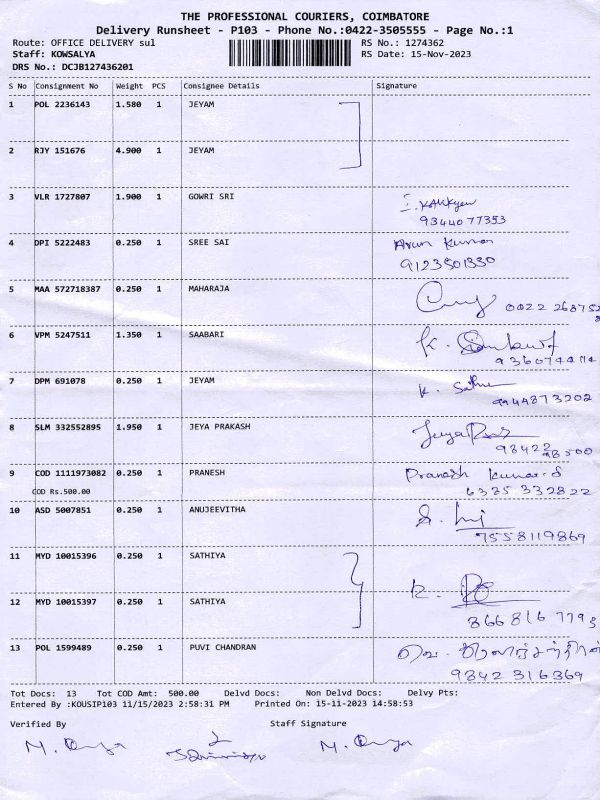 THE PROFESSIONAL COURIERS, COIMBATORE
Delivery Runsheet - P103 - Phone No.:0422-3505555 - Page No.:1
Route: OFFICE DELIVERY sul RS No.: 1274362
Staff: KOWSALYA RS Date: 15-Nov-2023
DRS No.: DCJB127436201
S No Consignment No Weight PCS Consignee Details Signature
1 POL 2236143 1.580 1 JEYAM
2 RJY 151676 4.900 1 JEYAM
3 VLR 1727807 1.900 1 GOWRI SRI
9344077353
4 DPI 5222483 0.250 1 SREE SAI Arun Kumar
9123501330
5 MAA 572718387 0.250 1 MAHARAJA
6 VPM 5247511 1.350 1 SAABARI K.
7 DPM 691078 0.250 1 JEYAM K.
9944873202
8 SLM 332552895 1.950 1 JEYA PRAKASH
98422
98500
9 COD 1111973082 0.250 1 PRANESH Pranesh Kumar.S
6385 332822
COD Rs.500.00
10 ASD 5007851 0.250 1 ANUJEEVITHA
7558119869
11 MYD 10015396 0.250 1 SATHIYA
12 MYD 10015397 0.250 1 SATHIYA
13 POL 1599489 0.250 1 PUVI CHANDRAN
9842 316369
Tot Docs: 13 Tot COD Amt: 500.00 Delvd Docs: Non Delvd Docs: Delvy Pts:
Entered By :KOUSIP103 11/15/2023 2:58:31 PM Printed On: 15-11-2023 14:58:53
Verified By Staff Signature